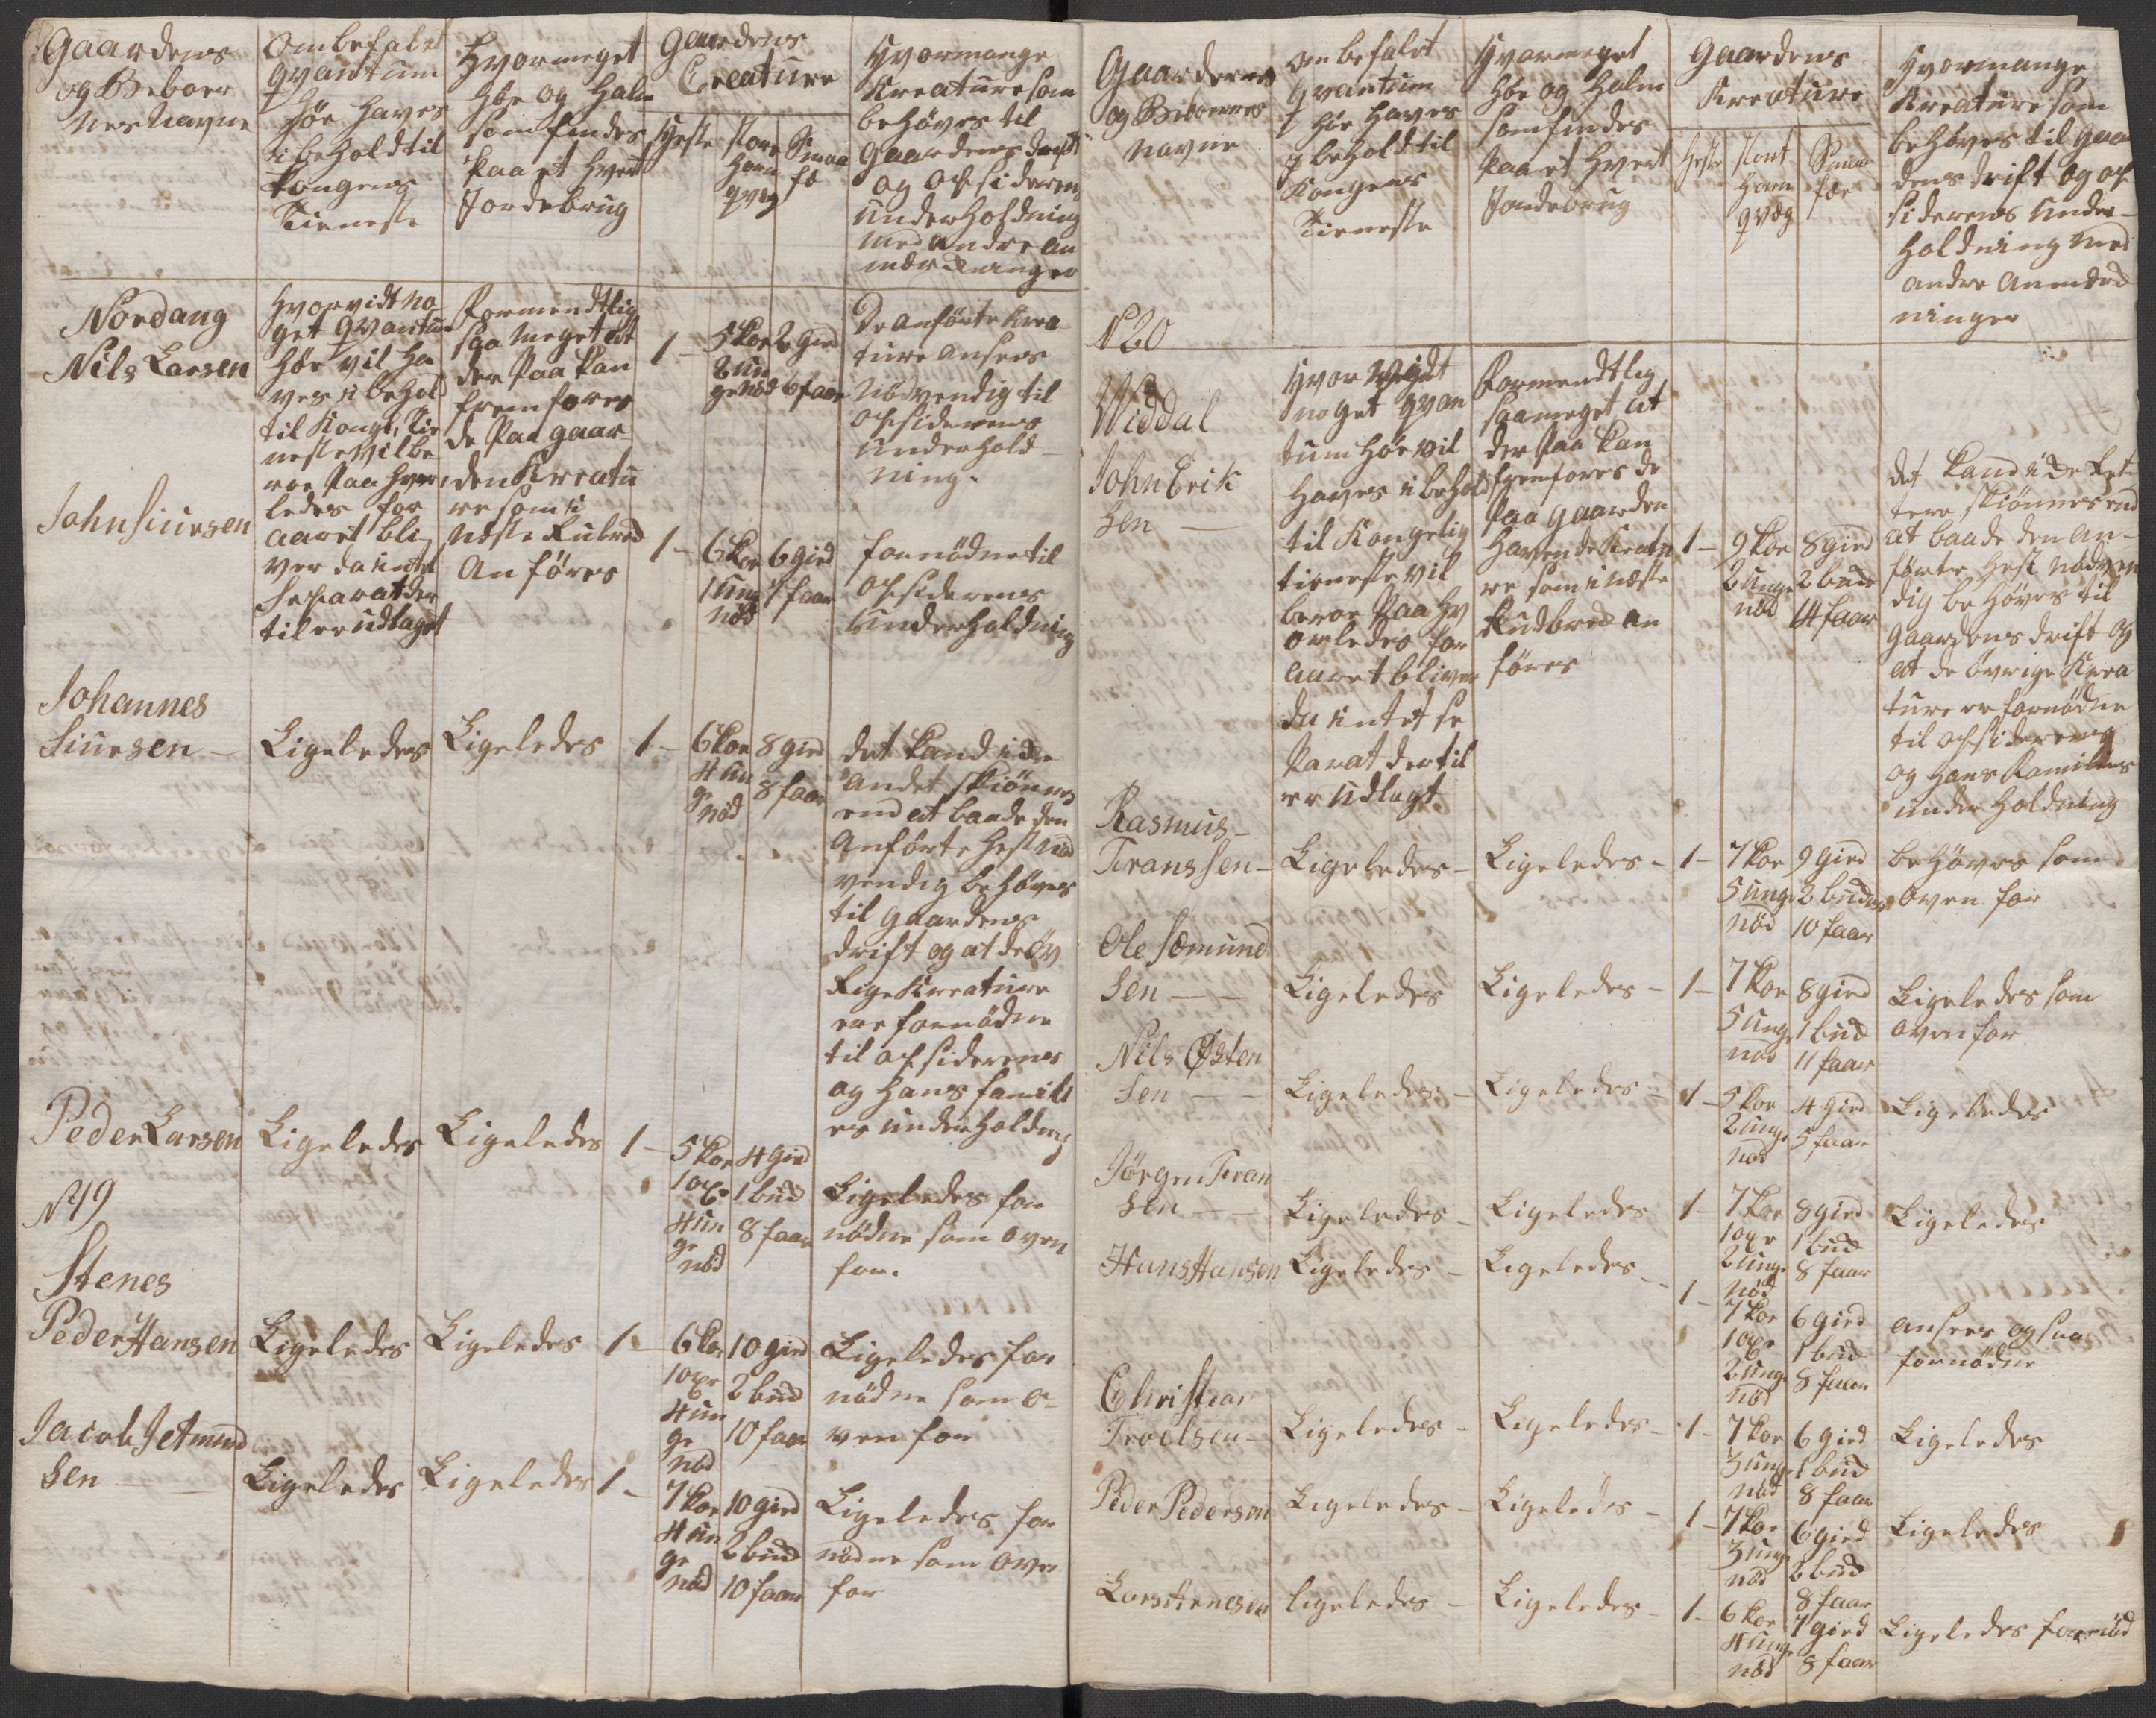 Gaardens
og Beboer
nes Navne
Ombefalet
qvantum
Höe haves
i behold til
Kongens
Tieneste
Hvormeget
Höe og Halm
som findes
paa et hvert
Jordebrug
Gaardens
Creature
Heste
store
Horn
qvæg
Smaa
fæ
Hvormange
Kreature som
behöves til
Gaardens drift
og opsiderens
underholdning
med andre an
mærkninger
Nordang
Nils Larsen
Hvorvidt no
get qvantum
Höe vil ha
ves i behold
til Kongl. Tie
neste vil be
roe paa hvor
ledes for
aaret bli
ver da intet
Separat der
til er udlaget
Formendtlig
saa meget at
der paa kan
fremfores
de paa gaar
den Kreatu
re som i
næste Rubred
Anföres
1 -
5 Kör
2 un
genöd
2 gied
6 faar
De anförte Krea
ture ansees
Nödvendig til
opsiderens
underhold
ning.
John Siursen
1 -
6 Kör
1 ung
nöd
6 gied
7 faar
fornödne til
opsiderens
underholdning
Johannes
Siursen -
Ligeledes
Ligeledes
1 -
6 Kör
4 un
ge
nöd
8 gied
8 faar
det kand icke
andet skiönnes
end at baade den
Anförte Hest nöd
vendig behöves
til gaardens
drift og at de öv
rige Kreature
ere fornödne
til opsiderens
og hans famili
es underholdning
Peder Larsen
Ligeledes
Ligeledes
1 -
5 Kör
1 oxe
4 un
ge
nöd
4 gied
1 bud
8 faar
Ligeledes for
nödne som oven
for.
N 19
Stenes
Peder Hansen
Ligeledes
Ligeledes
1 -
6 Kör
1 oxe
4 un
ge
nöd
10 gied
2 bud
10 faar
Ligeledes for
nödne som o
ven for
Jacob Jetmund
sen -
Ligeledes
Ligeledes
1 -
7 Kör
4 un
ge
nöd
10 gied
2 bud
10 faar
Ligeledes for
nödne som oven
for
Gaardernes
og Beboernes
navne
Ombefalet
qvantum
Höe haves
i behold til
Kongens
Tieneste
Hvormeget
Höe og Halm
som findes
paa et hvert
Jordebrug
Gaardens
Kreature
Heste
stort
Horn
qvæg
Smaa
fæe
Hvormange
Kreature som
behöves til Gaar
dens drift og op
siderens under
holdning med
andre anmærk
ninger
N 20
Widdal
John Erik
sen -
Hvor vidt
noget qvan
tum höe vil
haves i behold
til Kongelig
tieneste vil
beroe paa hv
orledes for
aaret bliver
da intet se
parat dertil
er udlagt
Formendtlig
saameget at
der paa kan
fremfores de
paa gaarden
havende Kreatu
re som i næste
Rudbred an
föres
1 -
9 Kör
2 unge
nöd
8 gied
2 bud
14 faar
det kand icke ret
tere skiönnes end
at baade den an
förte hest nödven
dig behöves til
gaardens drift og
at de övrige Krea
ture er fornödne
til opsiderens
og hans Familles
underholdning
Rasmus
Fransen -
Ligeledes -
Ligeledes -
1 -
7 Kör
5 unge
nöd
9 gied
2 bud
10 faar
behöves som
oven for
Ole Sæmund
sen -
Ligeledes
Ligeledes -
1 -
7 Kör
5 unge
nöd
8 gied
1 bud
11 faar
Ligeledes som
oven for
Nils Østen
sen -
Ligeledes -
Ligeledes -
1 -
5 Kör
2 unge
nöd
4 gied
5 faar
Ligeledes
Jörgen Fran
sen -
Ligeledes -
Ligeledes
1 -
7 Kör
1 oxe
2 unge
nöd
8 gied
1 bud
8 faar
Ligeledes
Hans Hansen
Ligeledes -
Ligeledes -
1 -
7 Kör
1 oxe
2 unge
nöd
6 gied
1 bud
8 faar
ansees og saa
fornödne
Christian
Troelsen -
Ligeledes -
Ligeledes -
1 -
7 Kör
3 unge
nöd
6 gied
1 bud
8 faar
Ligeledes
Peder Pedersen
Ligeledes -
Ligeledes -
1 -
7 Kör
3 unge
nöd
6 gied
bud
8 faar
Ligeledes
Lars Arnesen
ligeledes -
Ligeledes -
1 -
6 Kör
4 unge
nöd
7 gied
8 faar
Ligeledes fornöd